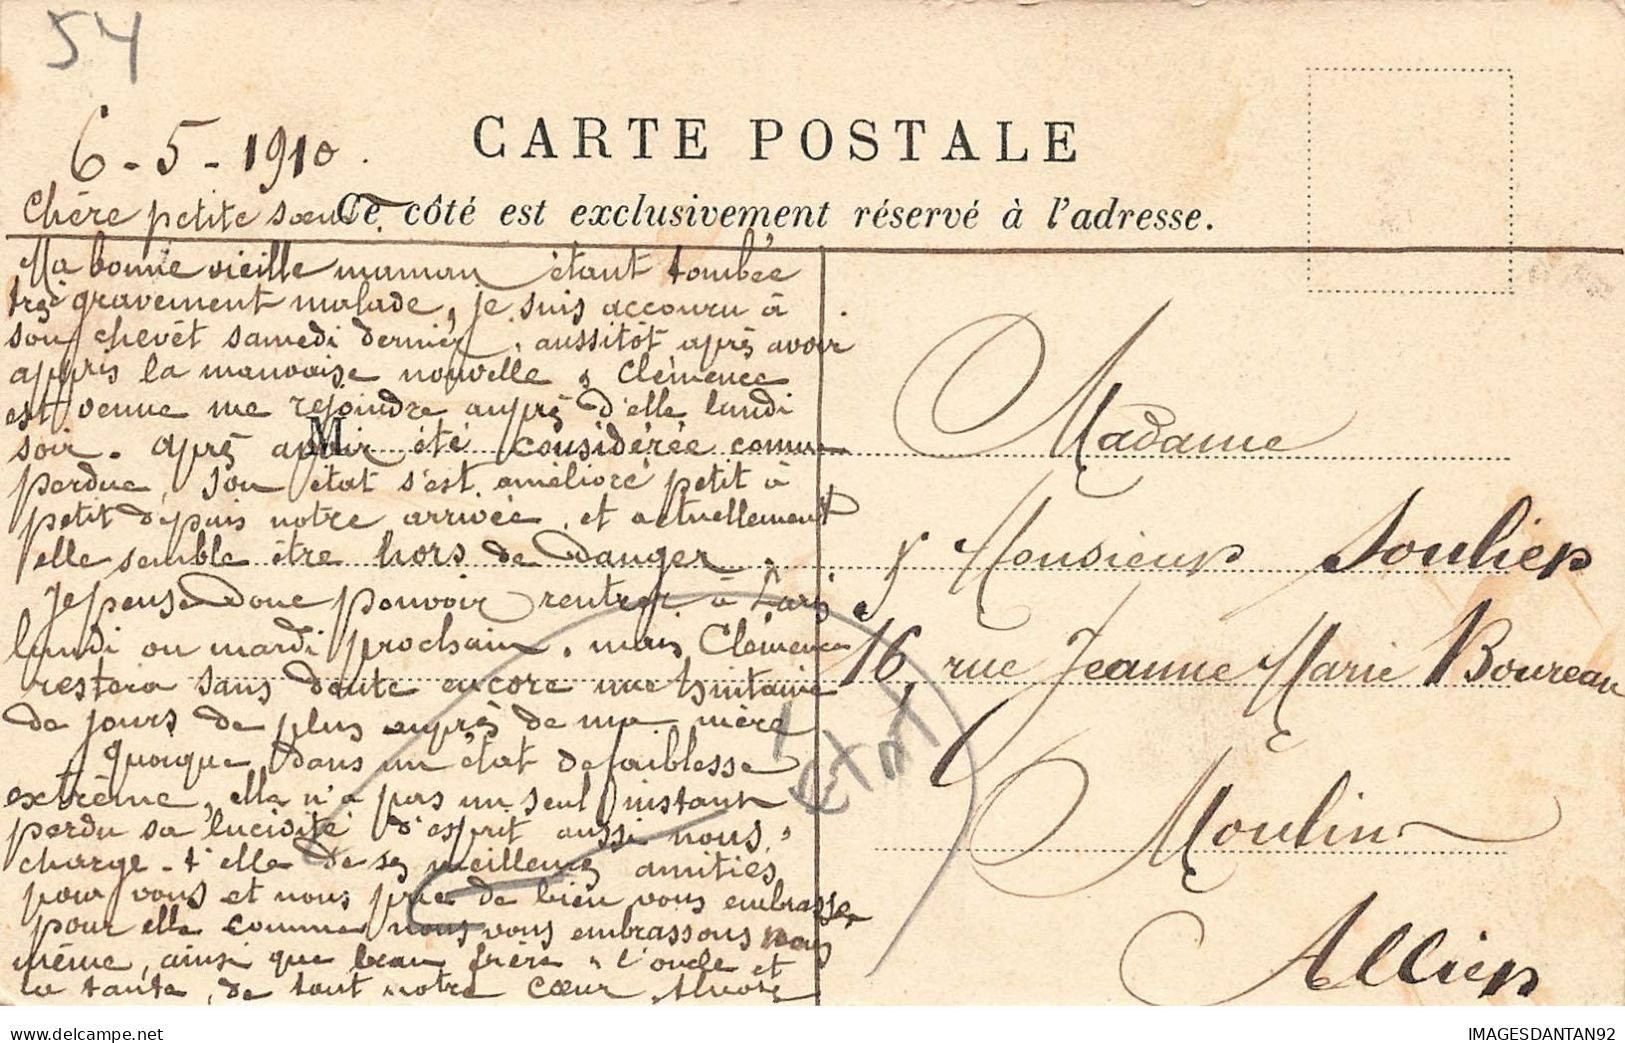 54
6-5-1910.
CARTE POSTALE
Chère petite sœur
Ce côté est exclusivement réservé à l'adresse.
Ma bonne vieille maman étant tombée
très gravement malade, je suis accouru à
son chevêt samedi dernier, aussitôt après avoir
appris la mauvaise nouvelle & Clémence
est venue me rejoindre auprès d'elle lundi
soir. après avoir été considérée comme
M
perdue, son état s'est amélioré petit à
petit depuis notre arrivée, et actuellement
elle semble être hors de danger.
Je pense donc pouvoir rentrer à Paris
lundi ou mardi prochain, mais Clémence
restera sans doute encore une huitaine
de jours de plus auprès de ma mère
Quoique dans un état de faiblesse
extrême, elle n'a pas un seul instant
perdu sa lucidité d'esprit aussi nous
charge-t'elle de ses meilleures amitiés
pour vous et nous prie de bien vous embrasser
pour elle comme nous vous embrassons nous
même, ainsi que beau frère, l'oncle et
la tante, de tout notre cœur
Madame
Monsieur Soulier
16, rue Jeanne Marie Boureau
Moulin
Allier
état
delcampe.net
IMAGESDANTAN92